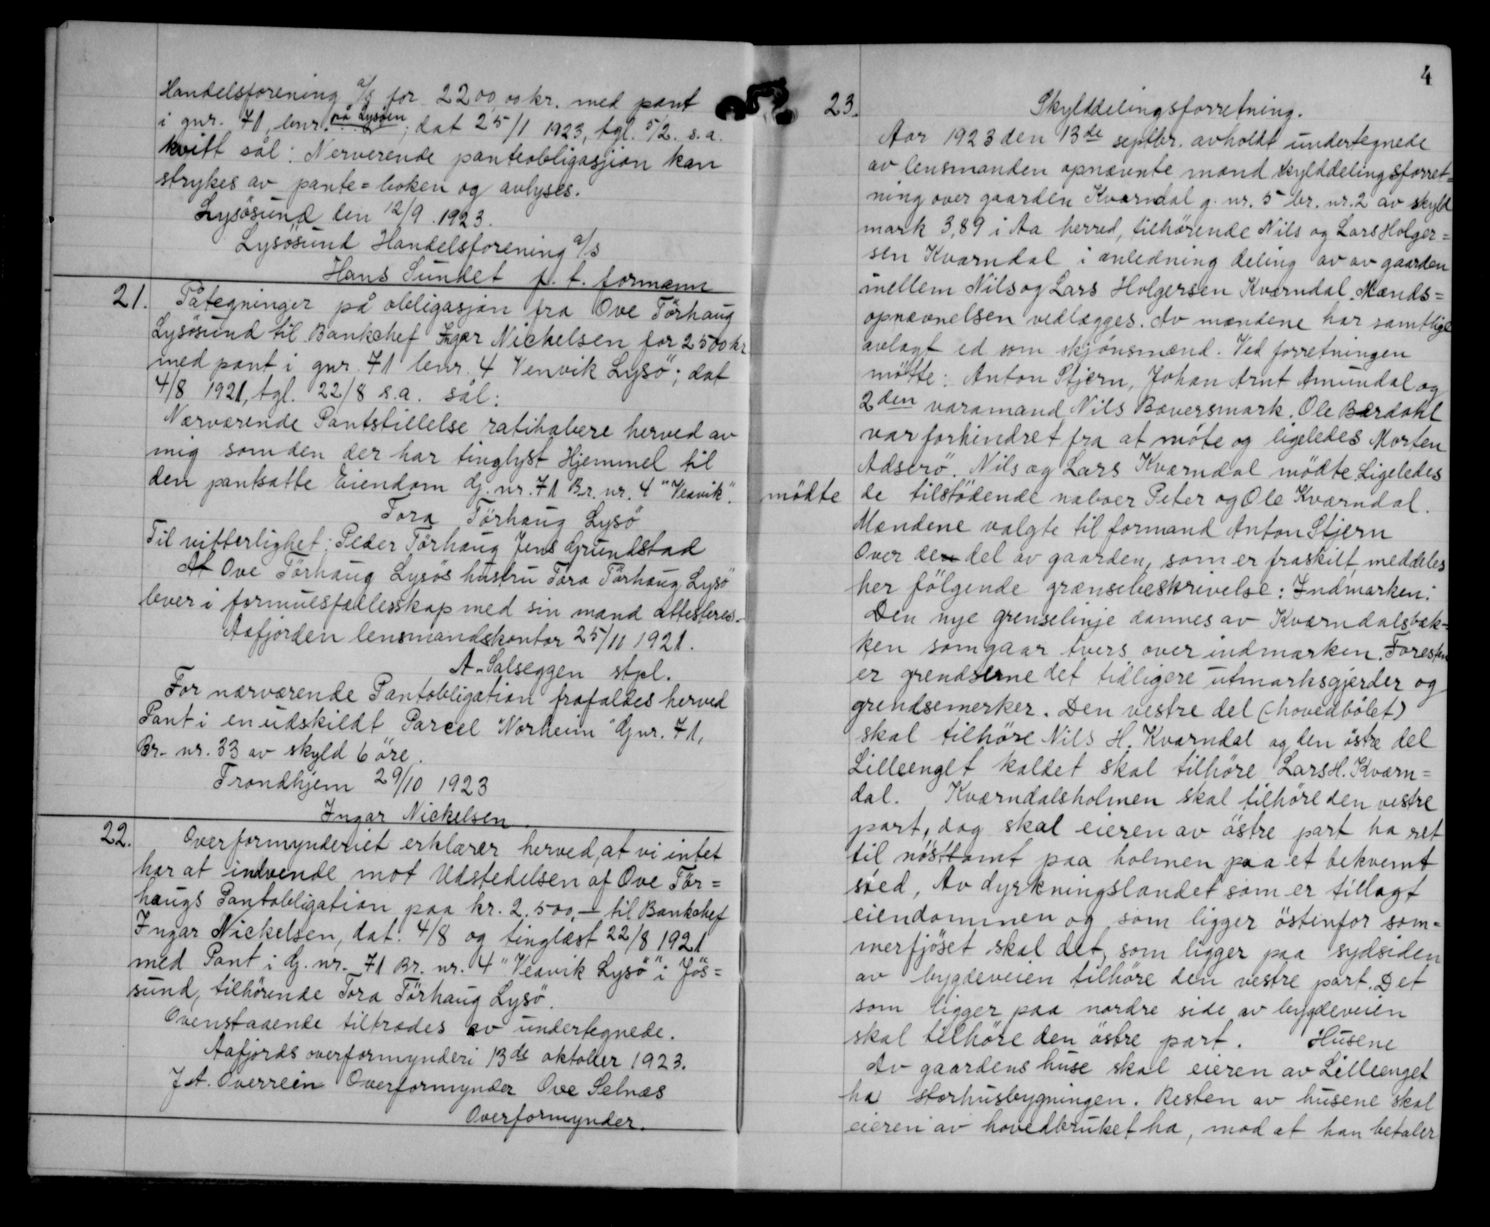 Handelsforening a/s for 2200,00 kr. med pant
i gnr. 71, bnr. på Lysøen; dat 25/1 1923, tgl. 5/2. s.a.
kvitt sål: Nerverende panteobligasjion kan
strykes av pante=boken og avlyses.
Lysösund den 12/9. 1923.
Lysösund Handelsforening a/s
Hans Sundet p.t. formann
21. Påtegninger på obligasjon fra Ove Törhaug
Lysösund til Bankchef Ingar Nickelsen for 2500 kr
med pant i gnr. 71 bnr. 4 Venvik Lysö; dat
4/8 1921, tgl. 22/8 s.a. sål:
Nærværende Pantstillelse ratihabere herved av
mig som den der har tinglyst Hjemmel til
den pantsatte Eiendom Gj. nr. 71 Br. nr. 4 "Veavik".
Tora Törhaug Lysö
Til vitterlighet: Peder Törhaug Jens Grundstad
At Ove Törhaug Lysös hustru Tora Törhaug, Lysö
lever i formuesfællesskap med sin mand attesteres.
Aafjorden lensmandskontor 25/11 1921.
A. Salseggen stpl.
For nærværende Pantobligation frafaldes herved
Pant i en udskildt Parcel "Norheim" Gnr. 71,
Br. nr. 33 av skyld 6 öre.
Trondhjem 29/10 1923
Ingar Nickelsen.
22. Overformynderiet erklærer herved, at vi intet
har at indvende mot Udstedelsen af Ove Tör=
haugs Pantobligation paa kr. 2.500,- til Bankchef
Ingar Nickelsen, dat. 4/8 og tinglæst 22/8 1921
med Pant i Gj. nr. 71 Br. nr. 4 "Veavik Lysö" i Jös=
sund, tilhörende Tora Törhaug Lysö.
Ovenstaaende tiltrædes av undertegnede.
Aafjords overformynderi 13de oktober 1923.
J.A. Overrein Overformynder Ove Selnæs
Overformynder.
4
23. Skylddelingsforretning.
Aar 1923 den 13de septbr. avholdt undertegnede
av lensmanden opnævnte mænd skylddelingsforret=
ning over gaarden Kværndal g. nr. 5 br. nr. 2 av skyld
mark 3,89 i Aa herred, tilhörende Nils og Lars Holger=
sen Kværndal i anledning deling av av gaarden
mellem Nils og Lars Holgersen Kværndal. Mænds=
opnævnelsen vedlægges. Av mændene har samtlige
avlagt ed som skjönsmænd. Ved forretningen
mötte: Anton Stjern, Johan Arnt Amundal og
2den varamand Nils Bæversmark. Ole Bærdahl
var forhindret fra at möte og ligeledes Morten
Adserö. Nils og Lars Kværndal mödte. Ligeledes
mödte de tilstödende naboer Peter og Ole Kværndal.
Mændene valgte til formand Anton Stjern
Over den del av gaarden, som er fraskilt, meddeles
her fölgende grænsebeskrivelse: Indmarken:
Den nye grenselinje dannes av Kværndalsbæk=
ken som gaar tvers over indmarken. Foresten
er grendserne det tidligere utmarksgjerder og
grendsemerker. Den vestre del (hovedbölet)
skal tilhöre Nils H. Kværndal og den östre del
Lilleenget kaldet skal tilhöre Lars H. Kværn=
dal. Kværndalsholmen skal tilhöre den vestre
part, dog skal eieren av östre part ha ret
til nösttomt paa holmen paa et bekvemt
sted, Av dyrkningslandet som er tillagt
eiendommen og som ligger östenfor som=
merfjöset skal det, som ligger paa sydsiden
av bygdeveien tilhöre den vestre part. Det
som ligger paa nordre side av bygdeveien
skal tilhöre den östre part. Husene
Av gaardens huse skal eieren av Lilleenget
ha storhusbygningen. Resten av husene skal
eieren av hovedbruket ha, mod at han betaler